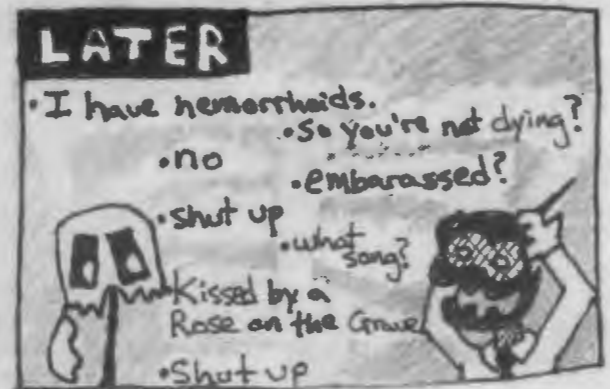 LATER
• I have hemorrhoids.
• So you're not dying?
• no
• embarassed?
• shut up
• what
song?
Kissed by a
Rose on the Grave
• Shut up